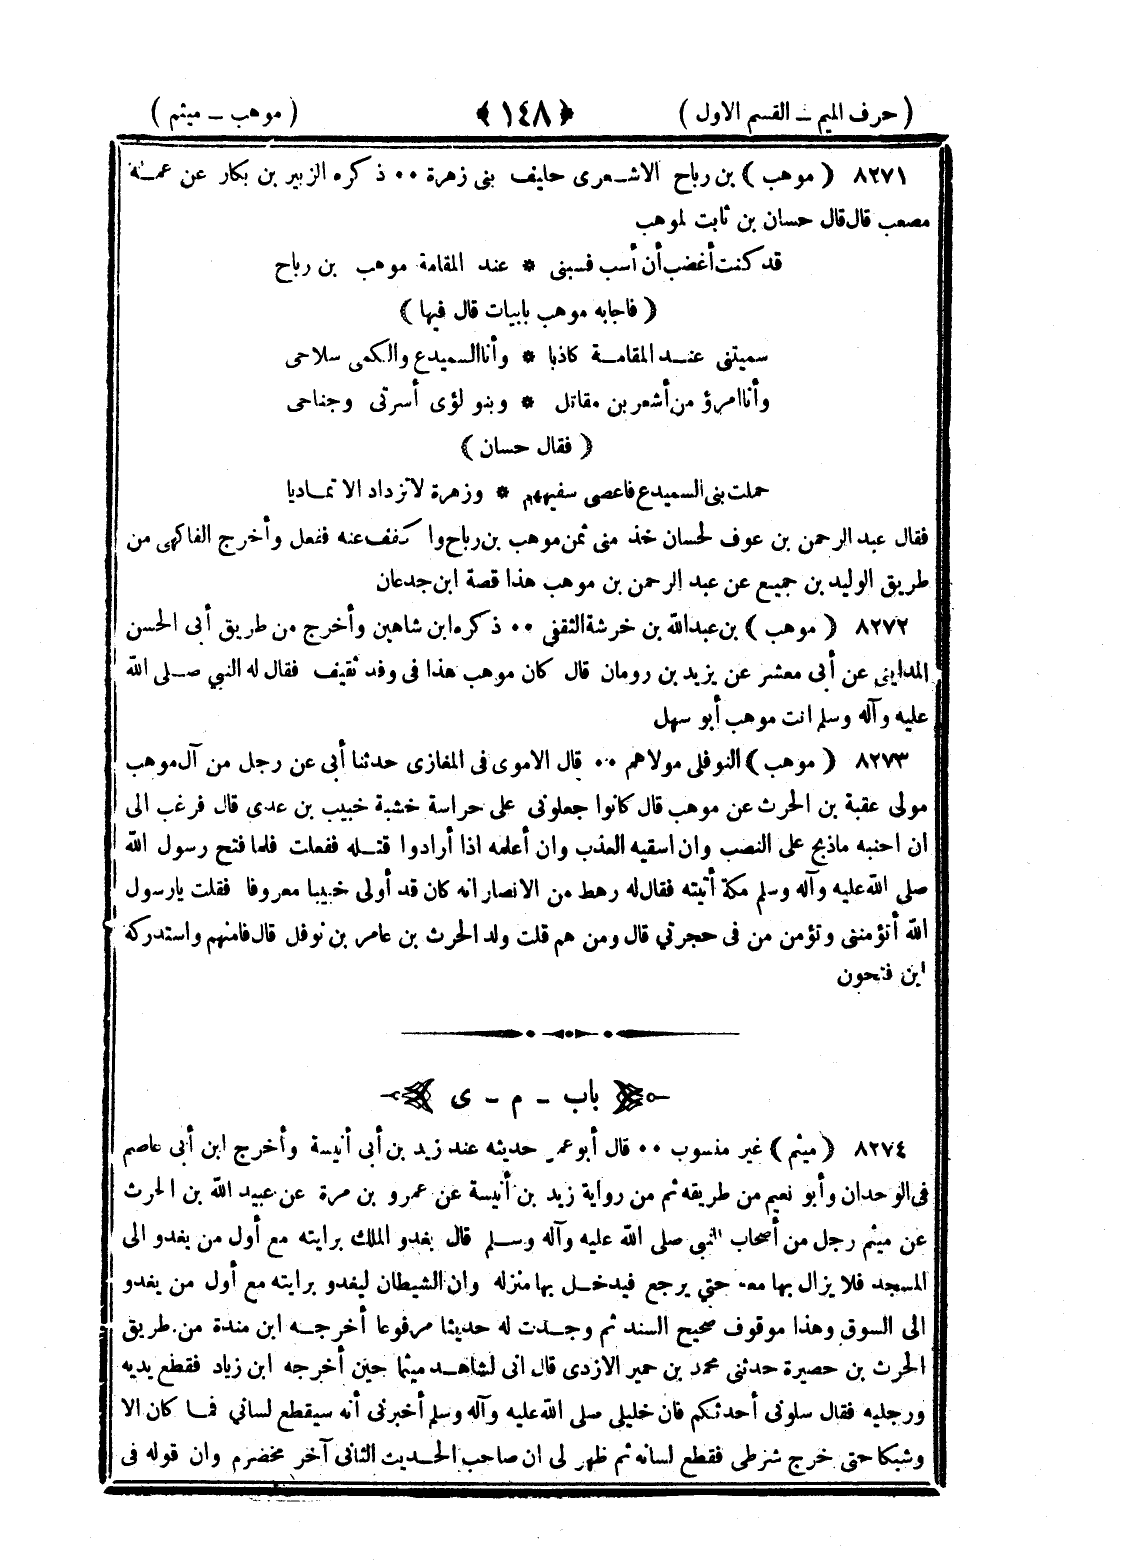 ( حرف الميم ـ القسم الاول ) ﴿ ١٤٨ ﴾ ( موهب ـ ميثم )
٨٢٧١ ( موهب ) بن رباح الاشعرى حليف بنى زهرة ٠٠ ذكره الزبير بن بكار عن عمه
مصعب قال قال حسان بن ثابت لموهب
قد كنت أغضب أن أسب فسبنى * عند المقامة موهب بن رباح
( فاجابه موهب بابيات قال فيها )
سميتنى عند المقامة كاذبا * وأنا السميدع والكمى سلاحى
وأنا امرؤ من أشعر بن مقاتل * وبنو لؤى أسرتى وجناحى
( فقال حسان )
حملت بنى السميدع فاعصى سفيههم * وزهرة لا تزداد الا تماديا
فقال عبد الرحمن بن عوف لحسان خذ منى ثمن موهب بن رباح وا كفف عنه ففعل وأخرج الفاكهى من
طريق الوليد بن جميع عن عبد الرحمن بن موهب هذا قصة ابن جدعان
٨٢٧٢ ( موهب ) بن عبدالله بن خرشة الثقفى ٠٠ ذكره ابن شاهين وأخرج من طريق أبى الحسن
المداينى عن أبى معشر عن يزيد بن رومان قال كان موهب هذا فى وفد ثقيف فقال له النبي صلى الله
عليه وآله وسلم انت موهب أبو سهل
٨٢٧٣ ( موهب ) النوفلى مولاهم ٠٠ قال الاموى فى المغازى حدثنا أبى عن رجل من آل موهب
مولى عقبة بن الحرث عن موهب قال كانوا جعلونى على حراسة خشبة خبيب بن عدى قال فرغب الى
ان احنبه ماذبح على النصب وان اسقيه العذب وان أعلمه اذا أرادوا قتله ففعلت فلما فتح رسول الله
صلى الله عليه وآله وسلم مكة أتيته فقال له رهط من الانصار انه كان قد أولى خبيبا معروفا فقلت يارسول
الله أتؤمننى وتؤمن من فى حجرتي قال ومن هم قلت ولد الحرث بن عامر بن نوفل قال فامنهم واستدركه
ابن فتحون
باب ـ م ـ ى
٨٢٧٤ ( ميثم ) غير منسوب ٠٠ قال أبو عمر حديثه عند زيد بن أبى أنيسة وأخرج ابن أبى عاصم
فى الوحدان وأبو نعيم من طريقه ثم من رواية زيد بن أنيسة عن عمرو بن مرة عن عبيد الله بن الحرث
عن ميثم رجل من أصحاب النبي صلى الله عليه وآله وسلم قال يغدو الملك برايته مع أول من يغدو الى
المسجد فلا يزال بها معه حتي يرجع فيدخل بها منزله وان الشيطان ليغدو برايته مع أول من يغدو
الى السوق وهذا موقوف صحيح السند ثم وجدت له حديثا مرفوعا أخرجه ابن مندة من طريق
الحرث بن حصيرة حدثنى محمد بن حمير الازدى قال انى لشاهد ميثما حين أخرجه ابن زياد فقطع يديه
ورجليه فقال سلونى أحدثكم فان خليلى صلى الله عليه وآله وسلم أخبرنى أنه سيقطع لساني فما كان الا
وشيكا حتى خرج شرطى فقطع لسانه ثم ظهر لى ان صاحب الحديث الثانى آخر مخضرم وان قوله فى